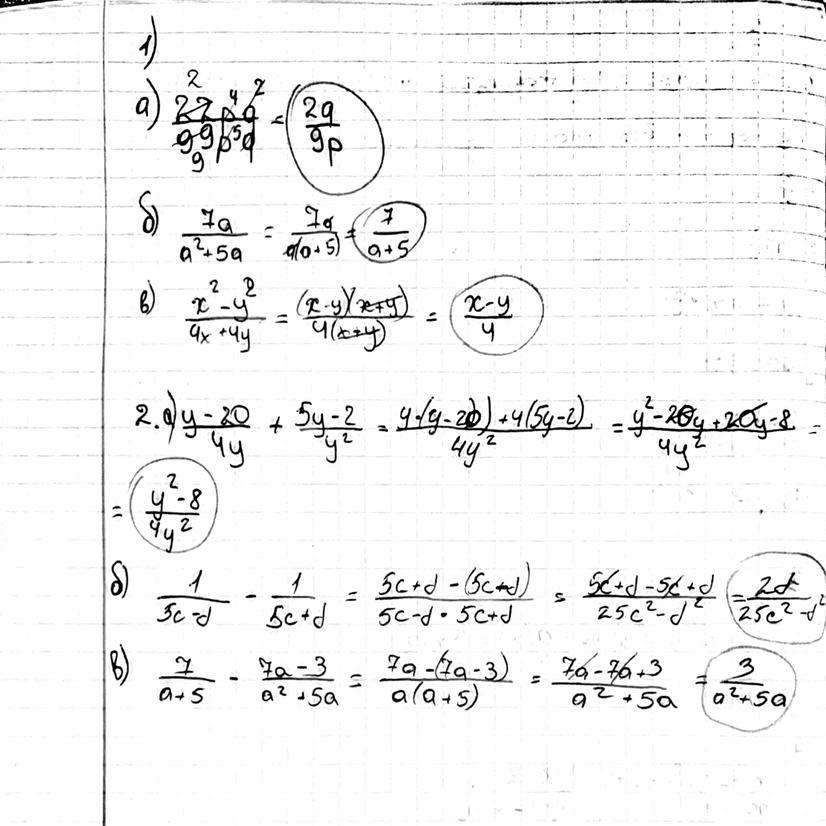 1)
а) 22p⁴q²/99p⁵q = 2q/9p
б) 7a/a²+5a = 7a/a(a+5) = 7/a+5
в) x²-y²/4x+4y = (x-y)(x+y)/4(x+y) = x-y/4
2. а) y-20/4y + 5y-2/y² = y·(y-20)+4(5y-2)/4y² = y²-20y+20y-8/4y² =
= y²-8/4y²
б) 1/5c-d - 1/5c+d = 5c+d-(5c-d)/5c-d·5c+d = 5c+d-5c+d/25c²-d² = 2d/25c²-d²
в) 7/a+5 - 7a-3/a²+5a = 7a-(7a-3)/a(a+5) = 7a-7a+3/a²+5a = 3/a²+5a